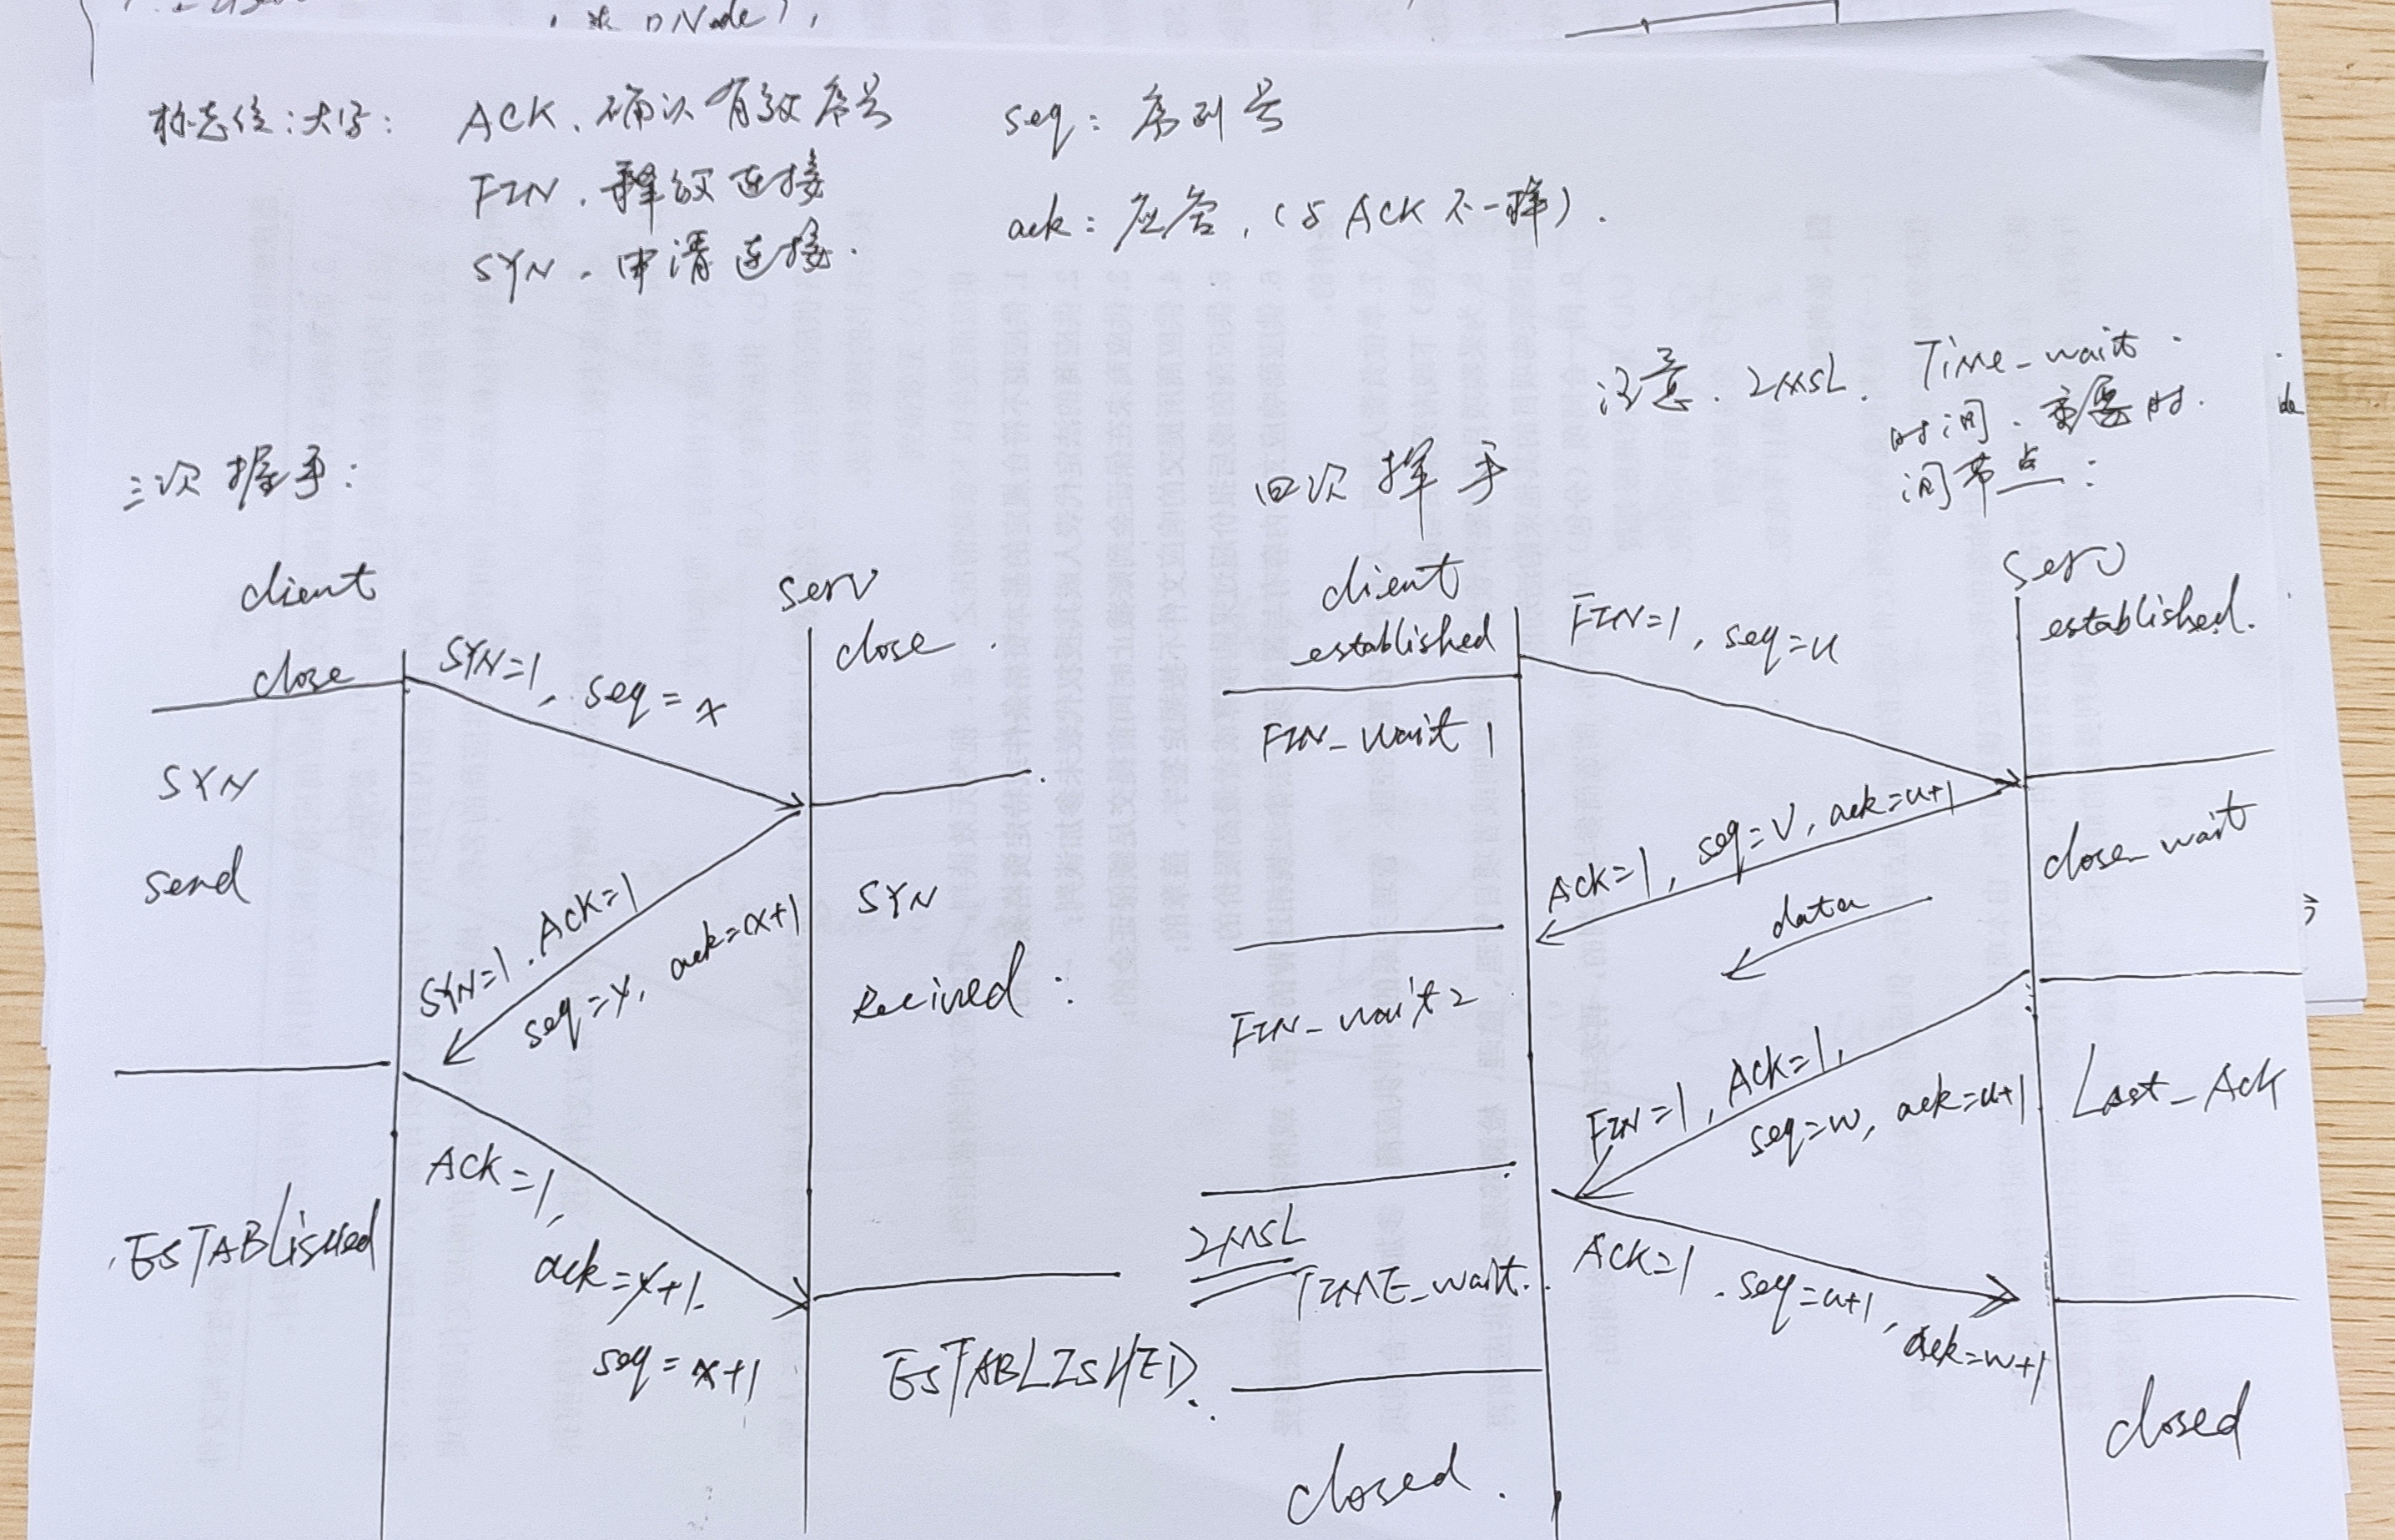 标志位:大写: ACK、确认有效序号
FIN、释放连接
SYN、申请连接.
seq: 序列号
ack: 应答,(与ACK不一样).
注意. 2MSL. Time_wait.
时间、重要时
间节点:
三次握手:
client
serv
close
close.
SYN=1, seq=x
SYN
send
SYN=1. ACK=1
seq=y, ack=x+1
SYN
Recived:
ACK=1,
ack=y+1.
seq=x+1
ESTABLisHed
ESTABLISHED.
四次挥手
client
serv
established
established.
FIN=1, seq=u
FIN_wait1
ACK=1, seq=v, ack=u+1
close_wait
data
FIN_wait2
FIN=1, ACK=1,
seq=w, ack=u+1
Last_ACK
2MSL
TIME_wait.
ACK=1. seq=u+1,
ack=w+1
closed.
closed